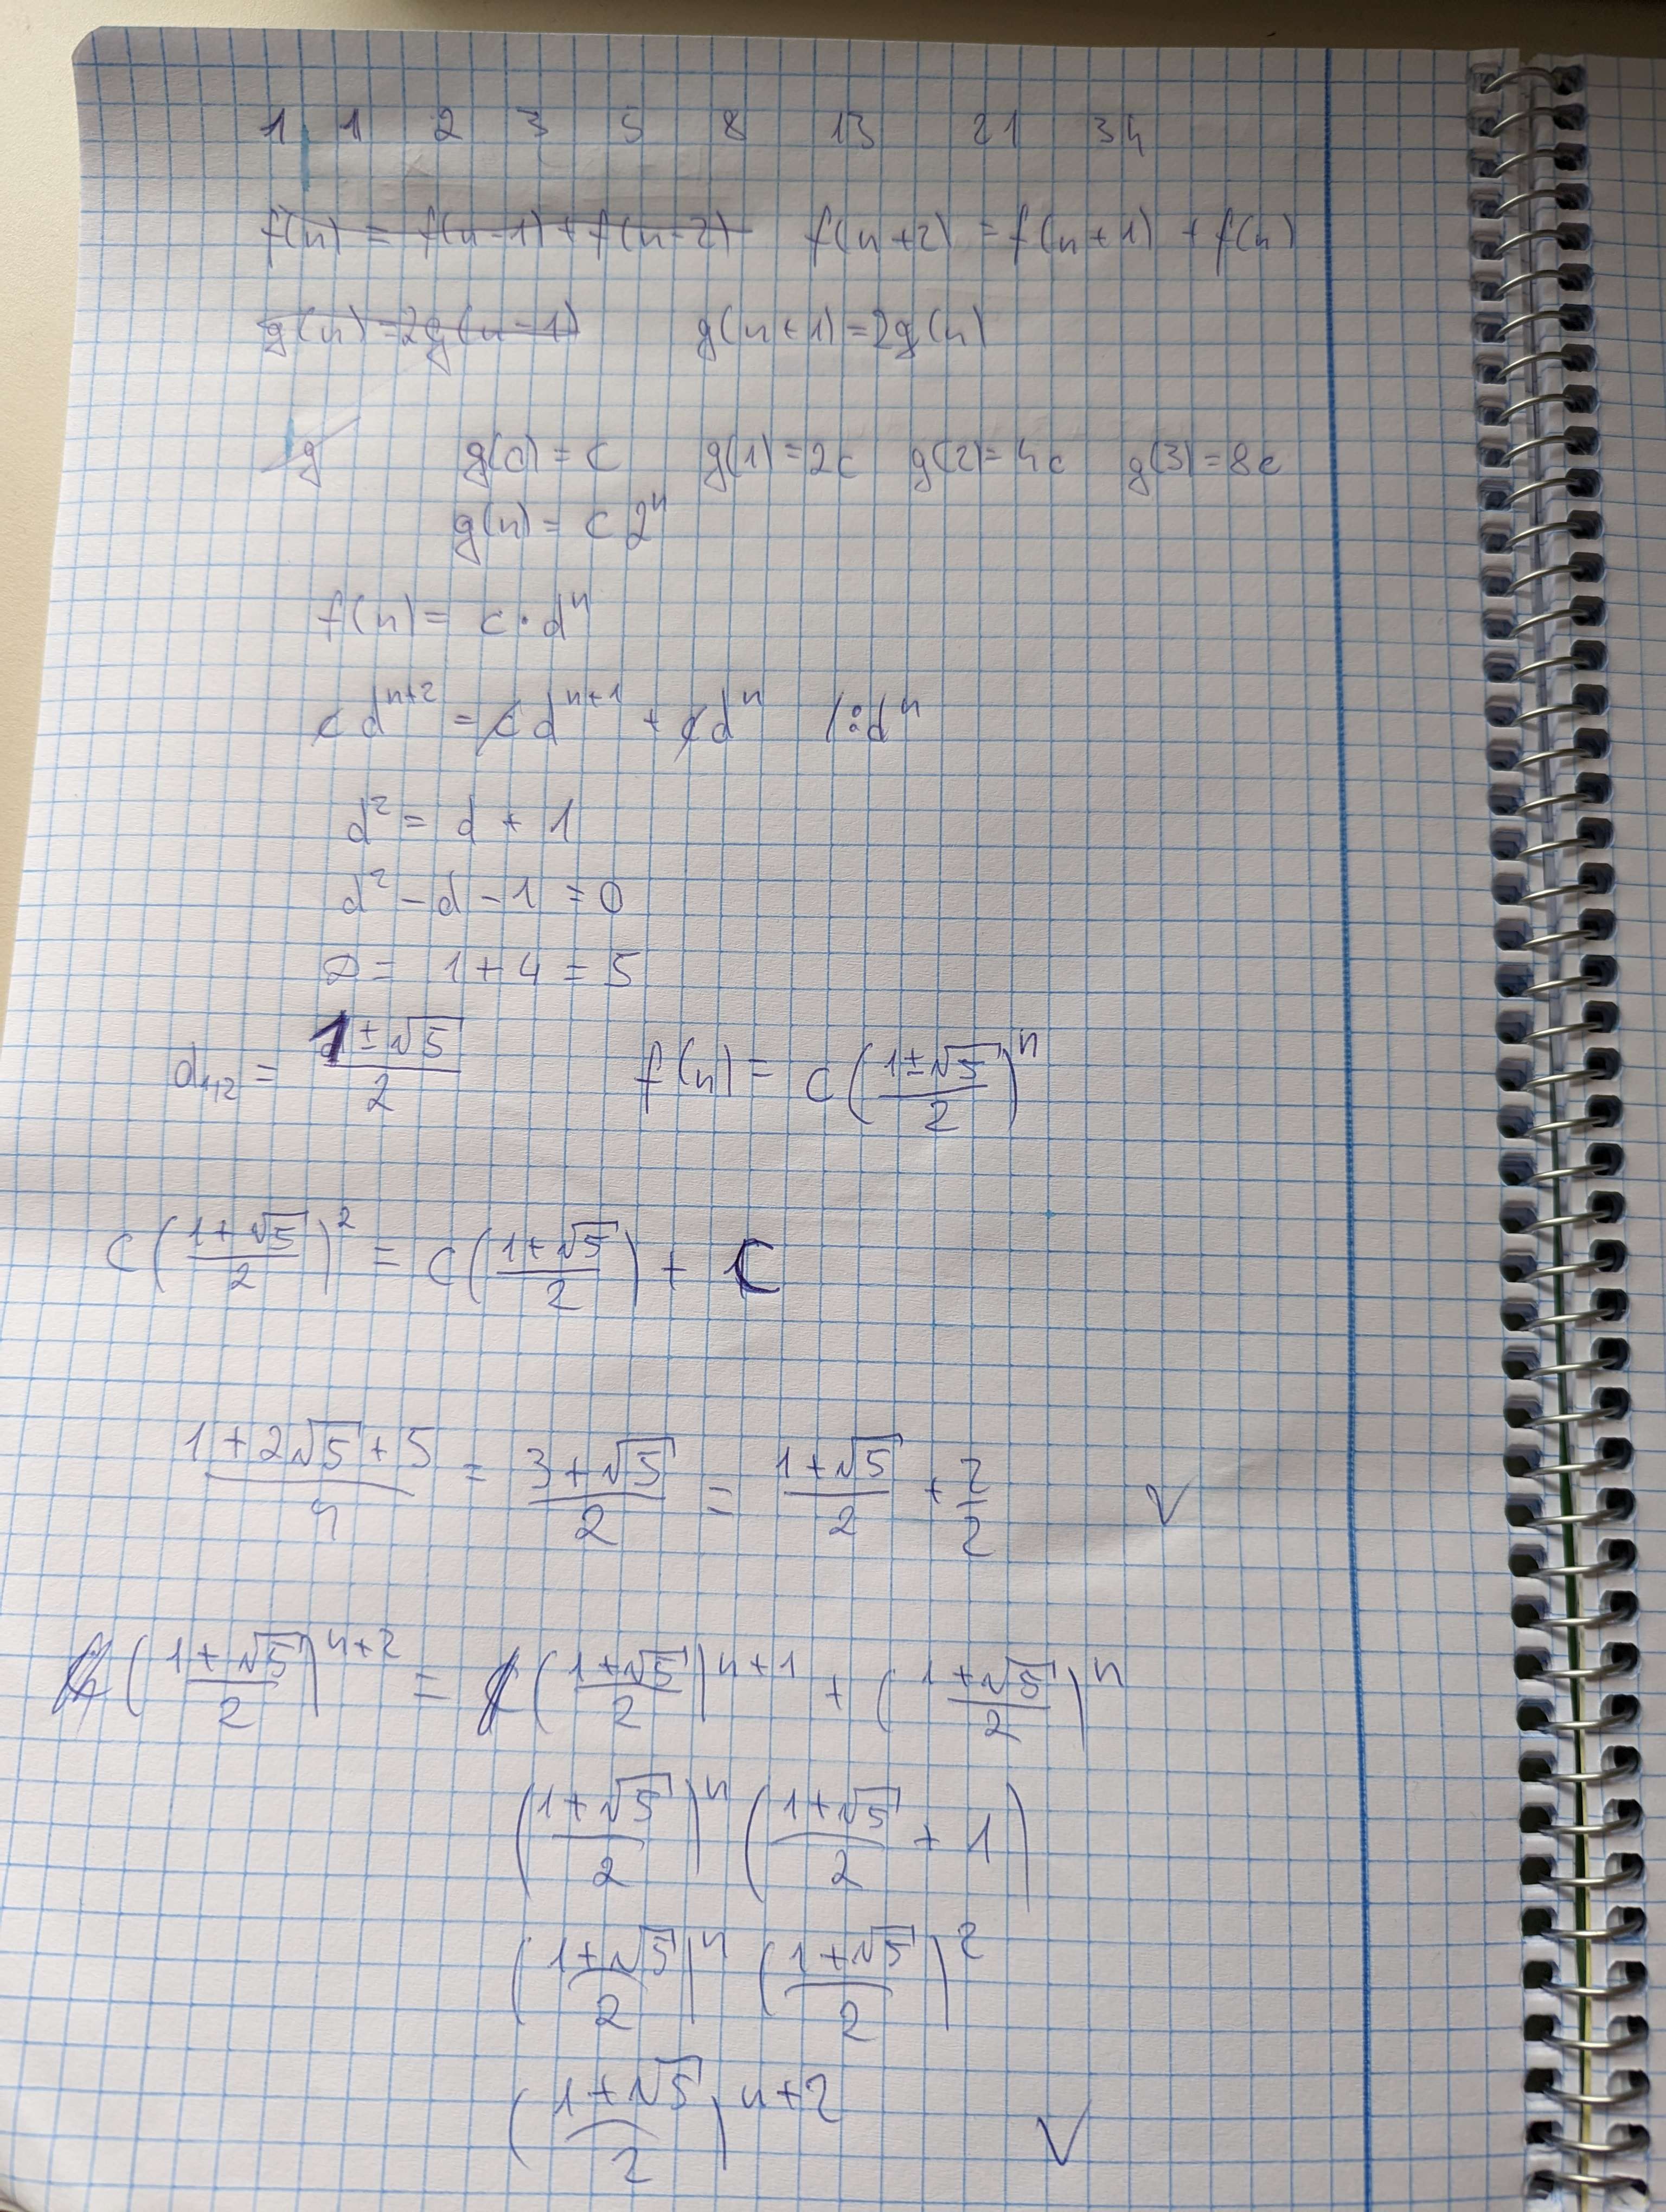 1 1 2 3 5 8 13 21 34
f(n) = f(n-1) + f(n-2) f(n+2) = f(n+1) + f(n)
g(n) = 2g(n-1) g(n+1) = 2g(n)
g g(0) = c g(1) = 2c g(2) = 4c g(3) = 8c
g(n) = c 2^n
f(n) = c · d^n
c d^{n+2} = c d^{n+1} + c d^n /:d^n
d² = d + 1
d² - d - 1 = 0
D = 1 + 4 = 5
d_{1,2} = (1 ± √5)/2 f(n) = c((1 ± √5)/2)^n
c((1 + √5)/2)² = c((1 + √5)/2) + c
(1 + 2√5 + 5)/4 = (3 + √5)/2 = (1 + √5)/2 + 2/2 V
((1 + √5)/2)^{n+2} = ((1 + √5)/2)^{n+1} + ((1 + √5)/2)^n
((1 + √5)/2)^n ((1 + √5)/2 + 1)
((1 + √5)/2)^n ((1 + √5)/2)²
((1 + √5)/2)^{n+2} V